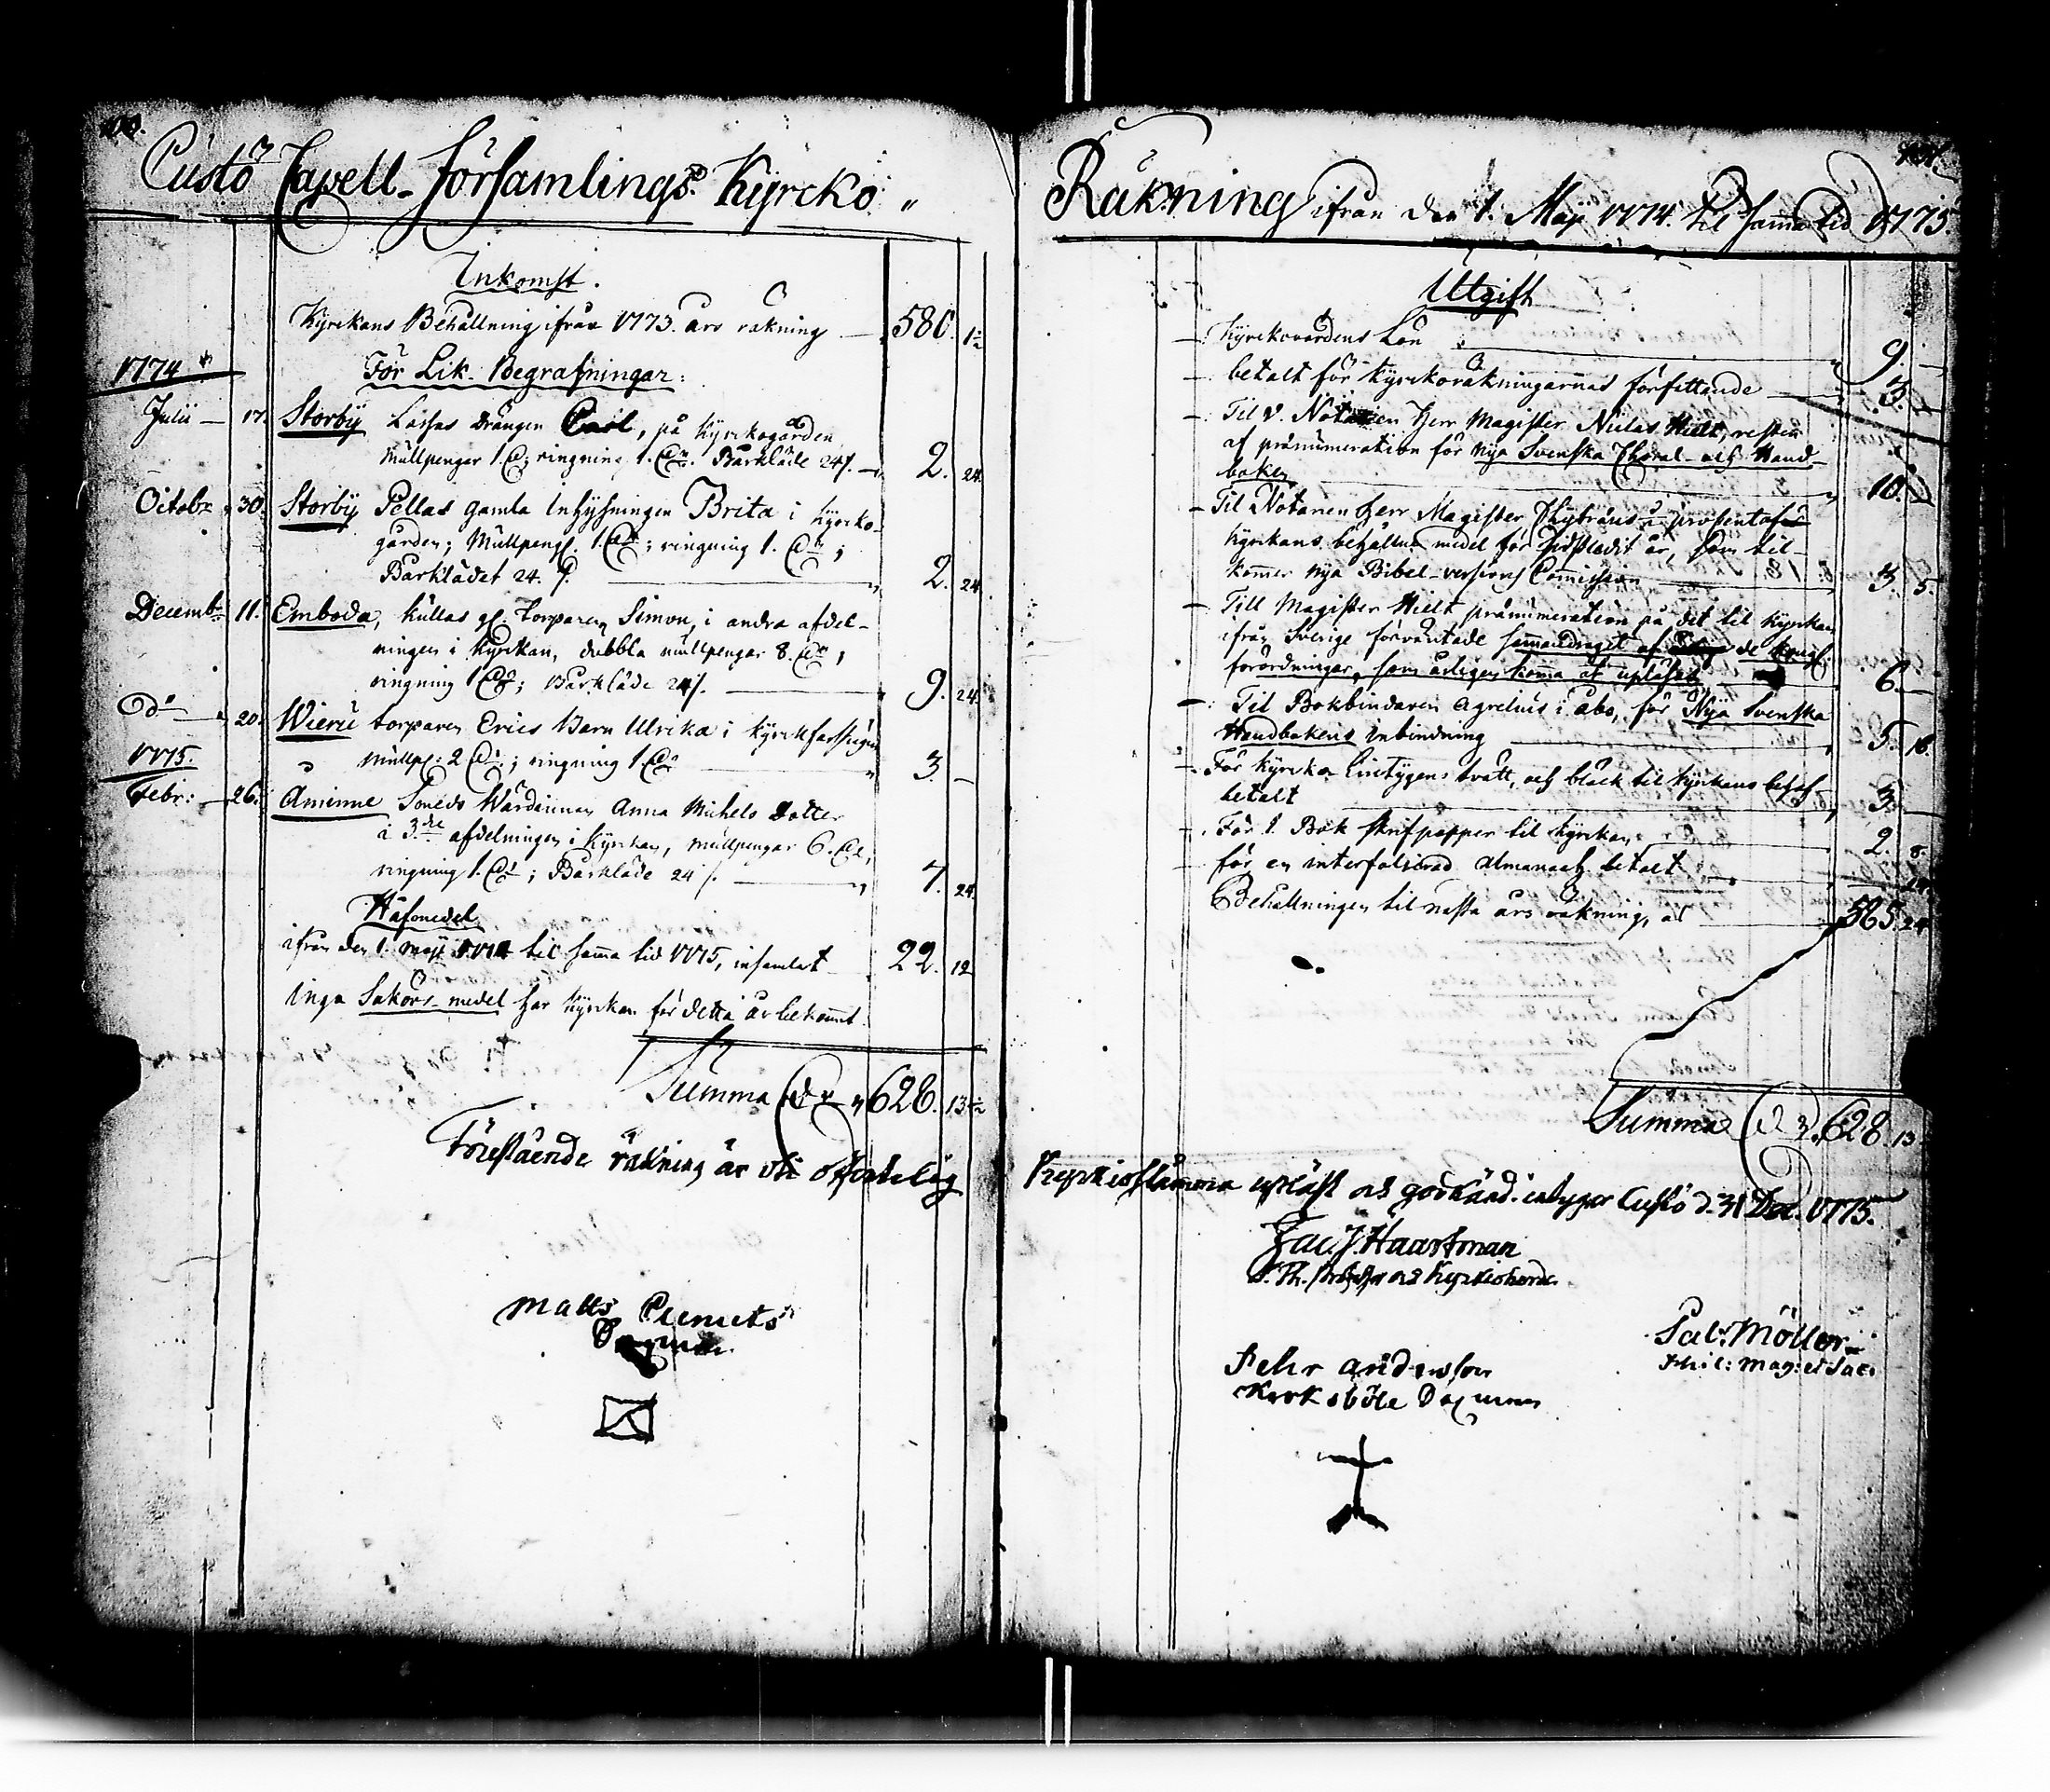 Custö Capell-Församlings Kyrcko
Inkomst.
Kyrckans Behållning ifrån 1773. års räkning 580. 1½
1774
För Lik-Begrafningar:
Julii 17. Storby Lassas Drängen Carl, på Kyrckogården
Mullpengar 1. ringning 1. Bårkläde 24/. 2. 24
Octobr 30 Storby Pellas gamla Inhyshningen Brita i Kyrcko-
gården; Mullpeng. 1. ; ringning 1. ;
Bårklädet 24. 2. 24
Decemb 11. Emboda, Kullas gl. torparen Simon, i andra afdel-
ningen i Kyrkan, dubbla mullpengar 8. ;
ringning 1 ; Bårkläde 24/. 9. 24
Do 20. Wieru torparen Erics Barn Ulrika i Kyrck
1775. mullp: 2 ; ringning 1. 3. –
Febr: 26. Åminne Wärdinnan Anna Michels Dotter
i 3:die afdelningen i Kyrckan, mullpengar 6.
ringning 1. ; Bårkläde 24/. 7. 24
Håfmedel
ifrån den 1. Maji 1774 til samma tid 1775, insamlat 22. 12
Inga Sakörs-medel har Kyrckan för detta år bekommit.
Summa 628. 13½
Förestående räkning är vti offentelig
Matts Clemets
Räkning ifrån den 1. Maji 1774. til samma tid 1775.
Utgift
Kyrckovärdens Lön 9. –
betalt för Kyrckoräkningarnas författande 3. –
Til V. Notarien Herr Magister Niclas Hielt, resten
af prænumeration för nya Svenska Choral- och Hand-
boken 10. –
Til Notarien Herr Magister
Kyrckans behållna medel för år, som til-
kommer nya Bibel-versions Commission 3. 5.
Till Magister Hielt prænumeration på det til Kyrckan
ifrån Sverige förväntade sammandraget af de Kongl.
förordningar, som årligen komma at upläsas 6. –
Til Bokbindaren Agrelius i Åbo, för Nya Svenska
Handbokens inbindning 5. 16.
För Kyrcko Linetygens tvätt, och bläck til Kyrckans behof
betalt 3. –
För 1. Bok skrifpapper til Kyrckan 2. 8.
för en interfolierad almanach betalt
Behållningen til nästa års räkning, är 585. 24
Summa 628. 13
Kyrkiostämma upläst och godkänd. intygar Custö d. 31 Dec. 1775.
Jac. J. Haartman
och Kyrkioherde
Sal. Möller
Phil: Mag: et Sac:
Pehr Andersson
Krok sböle